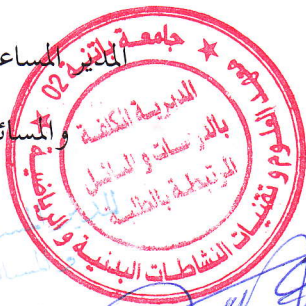 المدير المساعد
والمسائل
جامعة باتنة 02
معهد العلوم و تقنيات النشاطات البدنية و الرياضية
المديرية المكلفة
بالدراسات و المسائل
المرتبطة بالطلبة